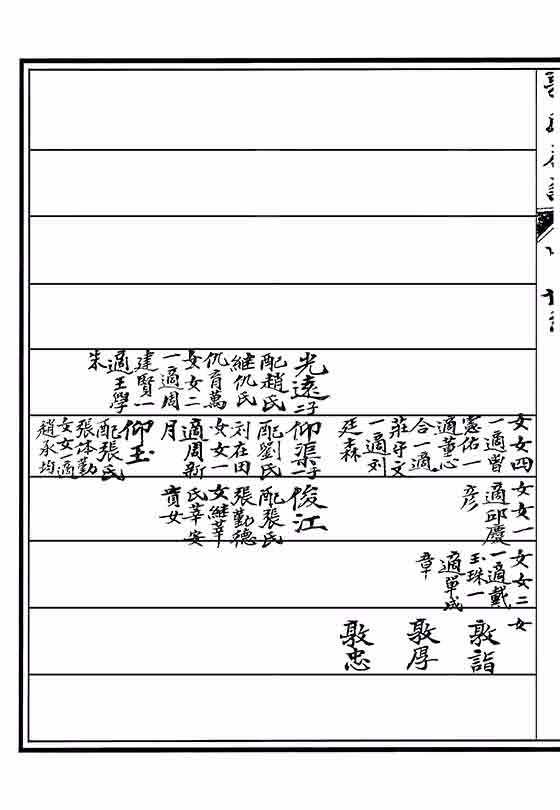 女女四
一適曾
憲佑一
適董心
合一適
莊守文
一適刘
廷森
女女一
適邱慶
彦
女女二
一適戴
玉珠一
適單成
章
女
敦詣
敦厚
敦忠
光遠二子
配趙氏
繼仇氏
仇育萬
女女二
一適周
建賢一
適王學
朱
仰渠一子
配劉氏
刘在田
女女一
適周新
月
仰玉
配張氏
張体勤
女女一適
趙承均
俊江
配張氏
張勤德
女繼莘
氏莘安
貢女